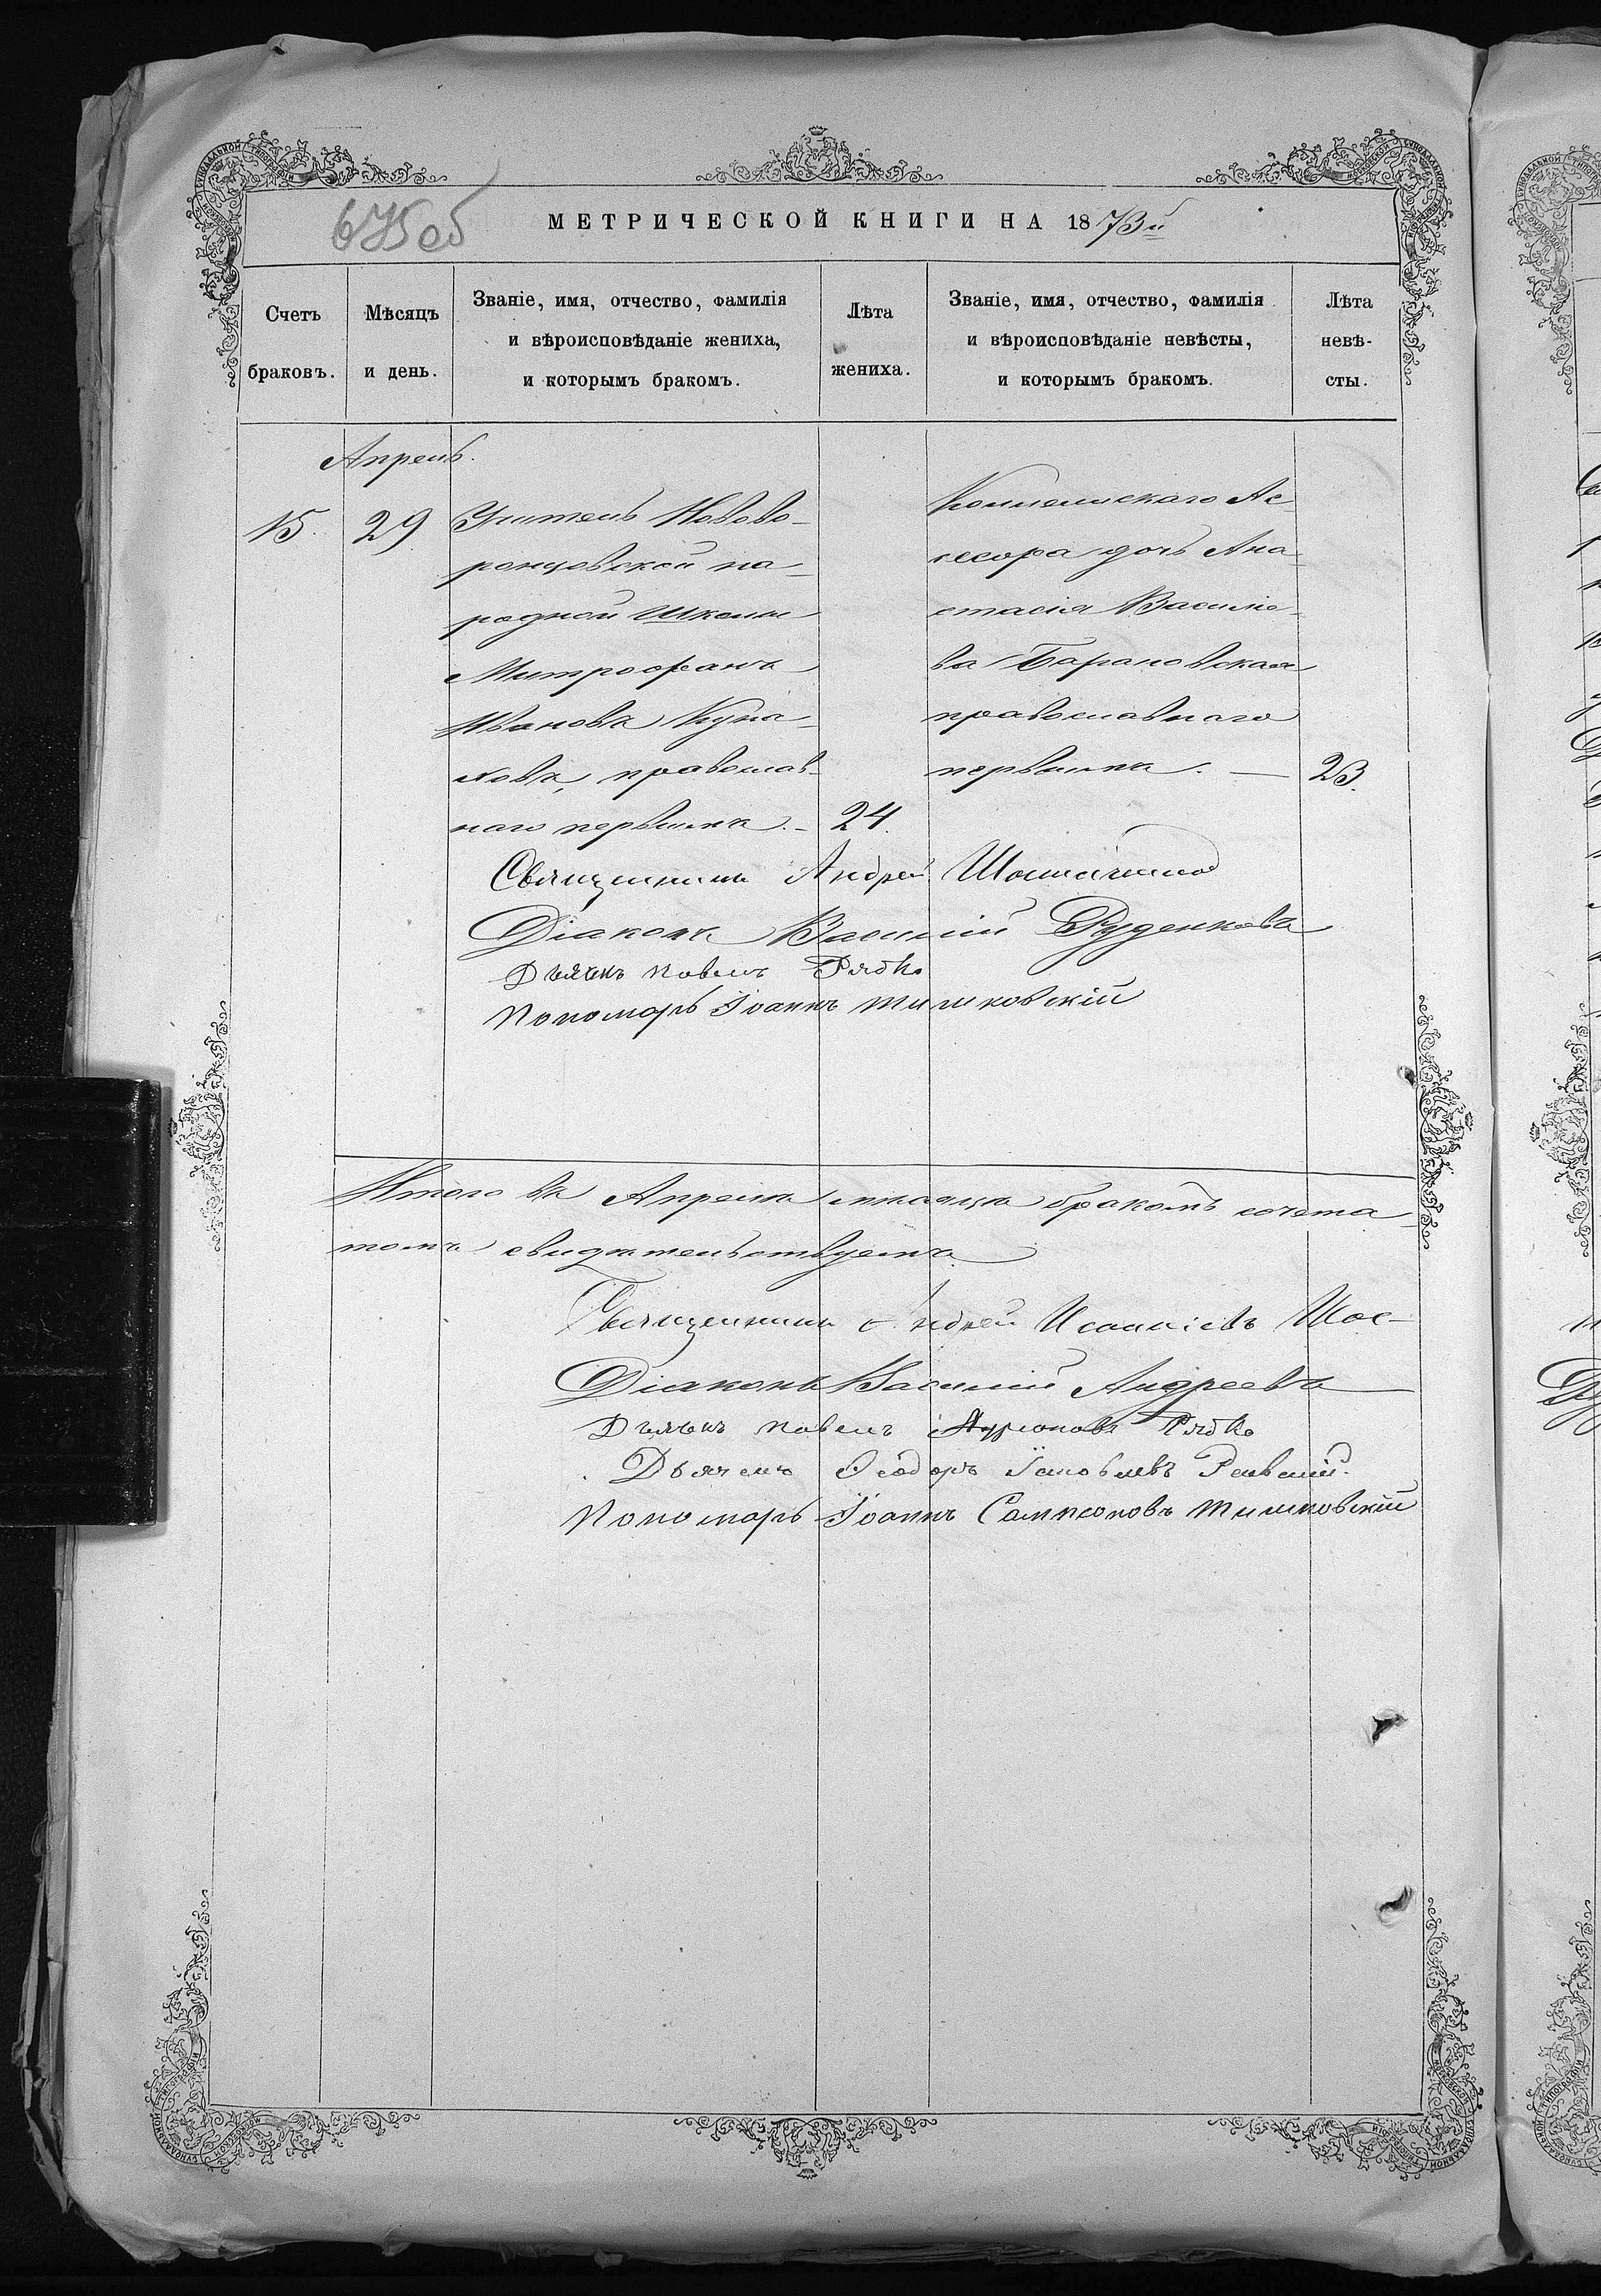 675 об
МЕТРИЧЕСКОЙ КНИГИ НА 1873й
Счетъ браковъ.
Мѣсяцъ и день.
Званіе, имя, отчество, фамилія
и вѣроисповѣданіе жениха,
и которымъ бракомъ.
Лѣта жениха.
Званіе, имя, отчество, фамилія
и вѣроисповѣданіе невѣсты,
и которымъ бракомъ.
Лѣта невѣ-
сты.
Апрель.
15. 29
Учитель Нововo-
ронцовской на-
родной школы
Митрофанъ
Ивановъ Куна-
ховъ, православ-
наго первымъ. - 24.
Коллежскаго Ас-
сесора дочь Ана-
стасія Василіе-
ва Барановская
православнаго
первымъ. — 23.
Священникъ Андрей
Діаконъ Василий Руденковъ
Дьячекъ Павелъ Рябко
Пономарь Іоаннъ Тишковскій
Итого въ Апрелѣ мѣсяцѣ бракомъ сочета-
свидѣтельствуемъ
Священникъ Андрей Шос-
Діаконъ Василий Андреевъ
Дьячекъ Павелъ Рябко
Дьячекъ Ѳеодоръ Іаковлевъ
Пономарь Іоаннъ Сампсоновъ Тишковскій